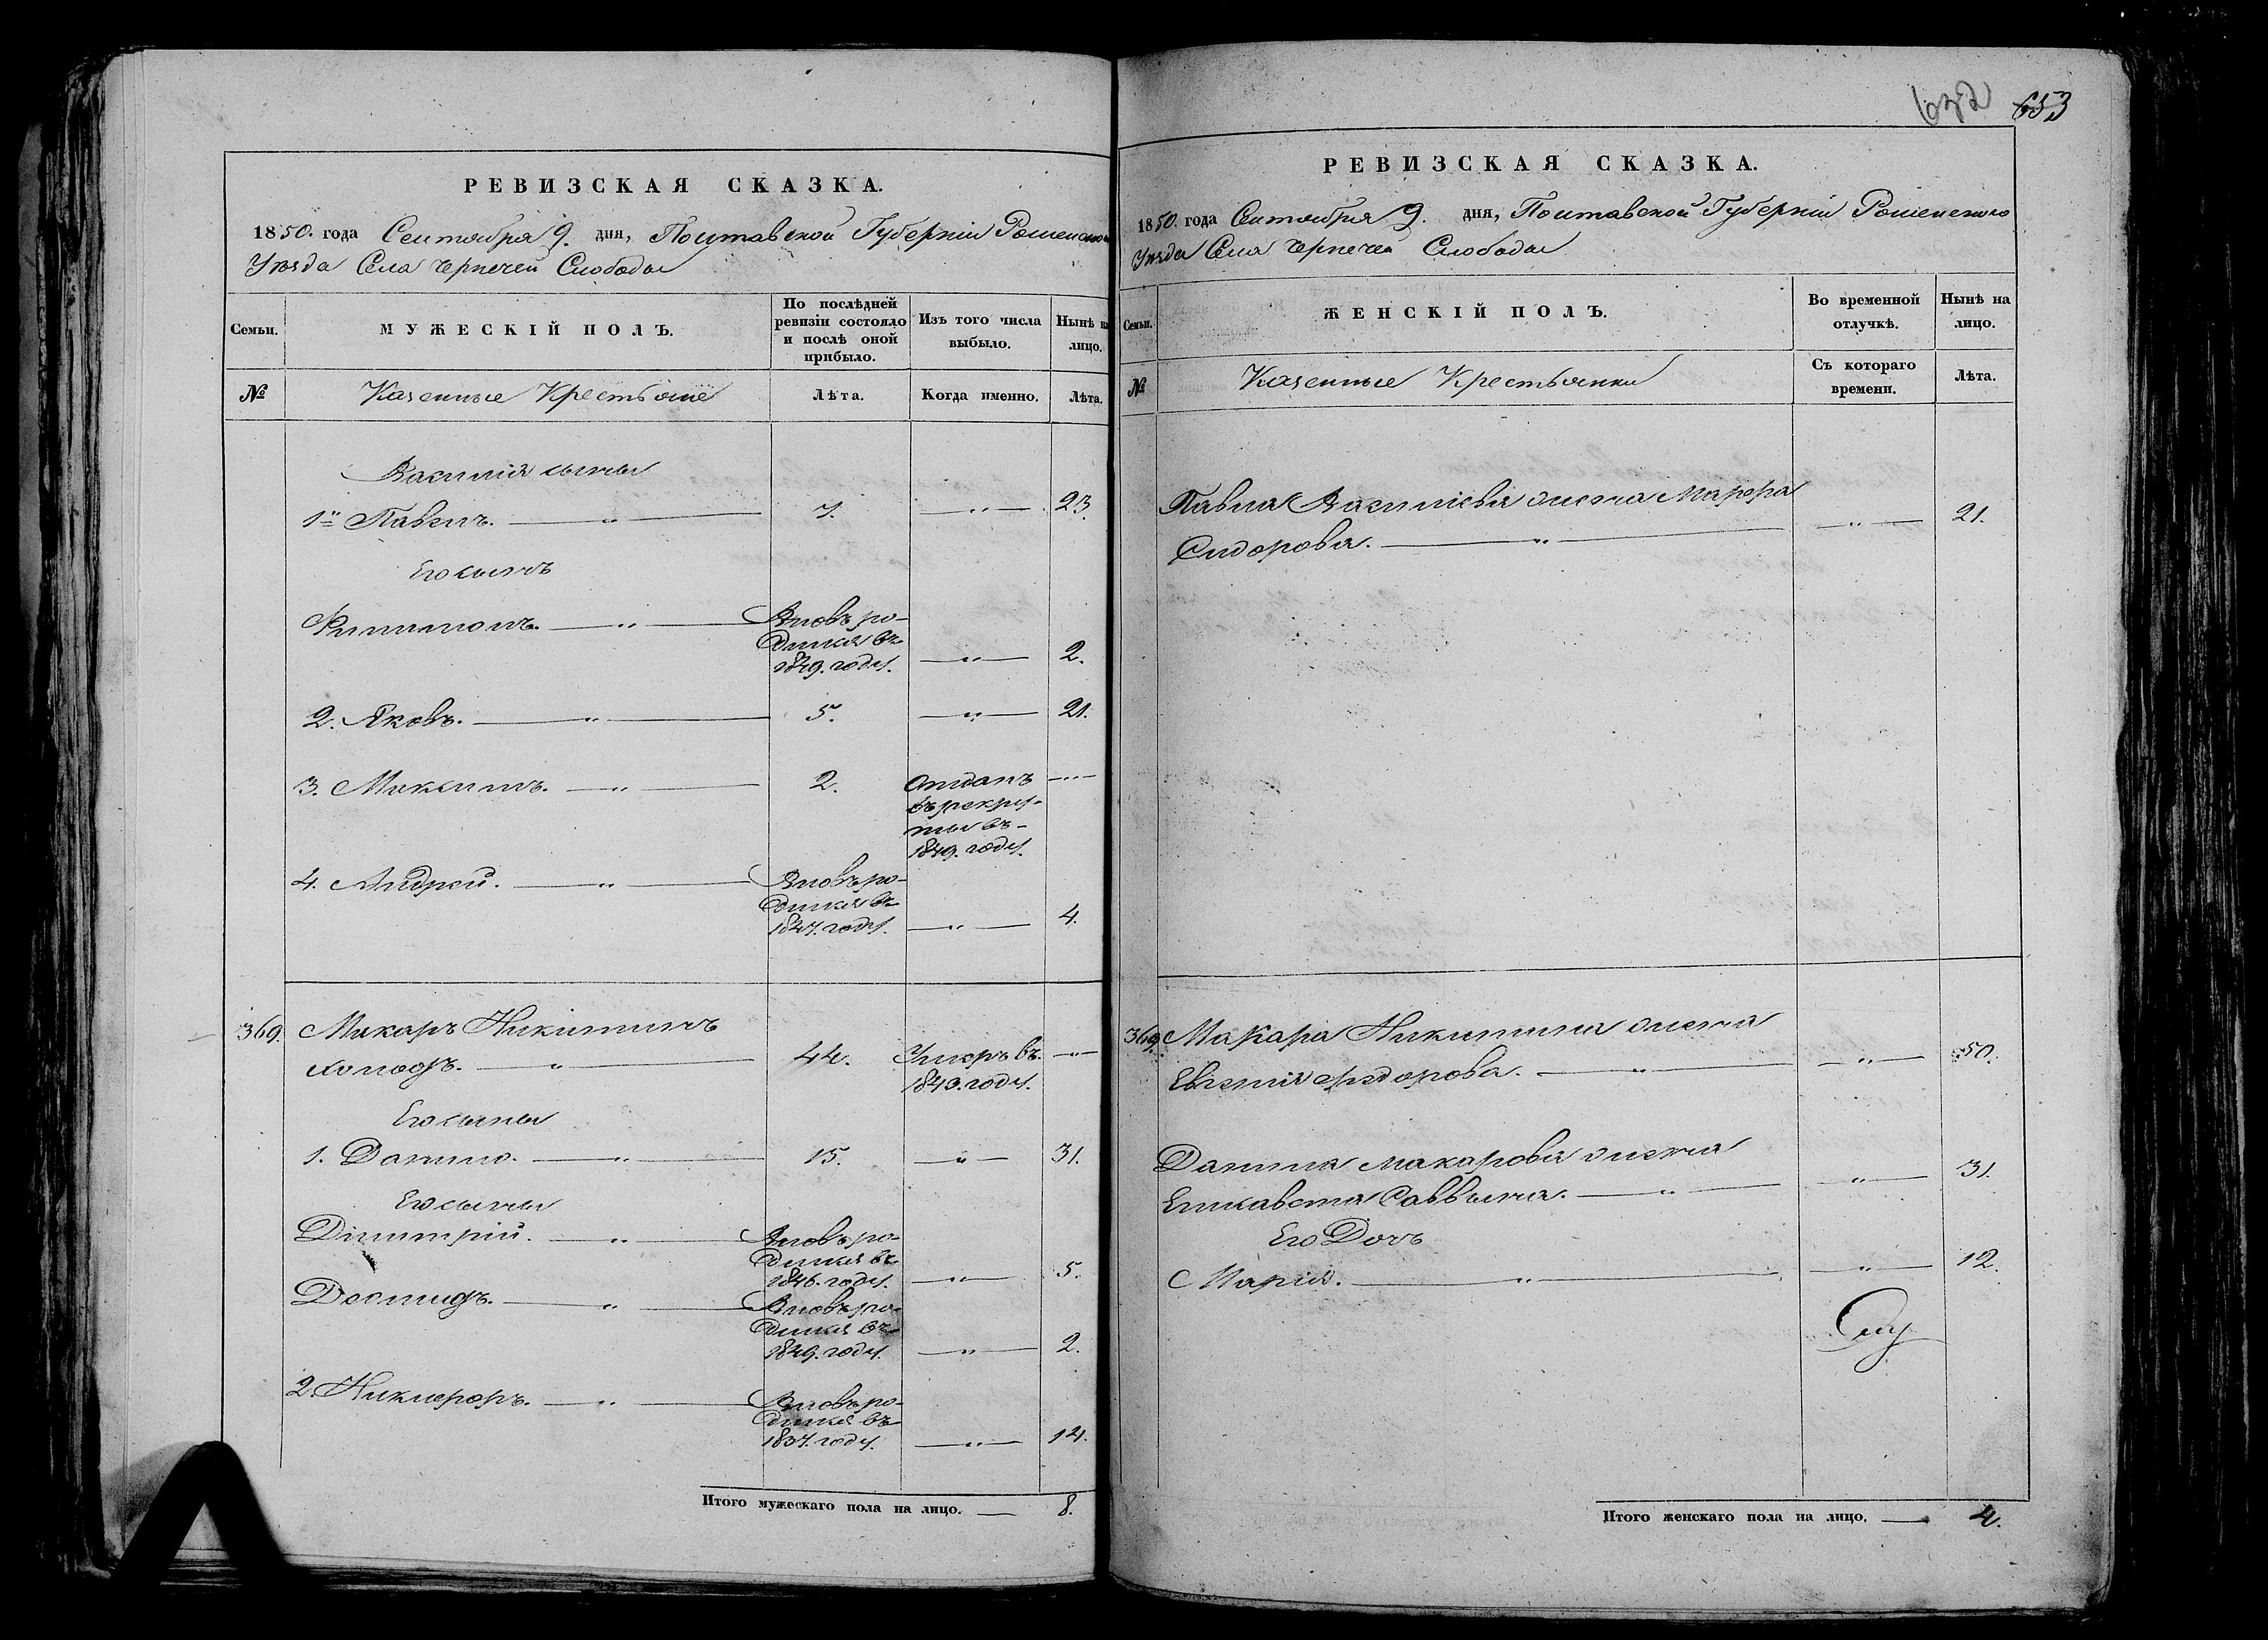 РЕВИЗСКАЯ СКАЗКА.
1850. года Сентября 9. дня, Полтавской Губерніи Роменского
Уѣзда Села Черпечей Слободы
Семьи.
МУЖЕСКІЙ ПОЛЪ.
По послѣдней ревизіи состояло и послѣ оной прибыло.
Изъ того числа выбыло.
Нынѣ на лицо.
№
Казенные Крестьяне
Лѣта.
Когда именно.
Лѣта.
Василія сыны
1й Павелъ. — " — 7. — " — 23.
Его сынъ
Филимонъ. — " — Вновь ро-
дился въ
1849. году. — " — 2.
2. Яковъ. — " — 5. — " — 21.
3. Максимъ. — " — 2. Отданъ — " —
въ рекру-
ты въ
1849. году.
4. Андрей. — " — Вновь ро-
дился въ
1847. году. — " — 4.
369. Макаръ Никитинъ
— " — 44. Умеръ въ — " —
1843. году.
Его сыны
1. Данило. — " — 15. — " — 31.
Его сыны
Димитрій. — " — Вновь ро-
дился въ
1846. году. — " — 5.
Деомидъ. — " — Вновь ро-
дился въ
1849. году. — " — 2.
2. Никифоръ. — " — Вновь ро-
дился въ
1837. году. — " — 14.
Итого мужескаго пола на лицо. — 8.
632 653
РЕВИЗСКАЯ СКАЗКА.
1850. года Сентября 9. дня, Полтавской Губерніи Роменского
Уѣзда Села Черпечей Слободы
Семьи.
ЖЕНСКІЙ ПОЛЪ.
Во временной отлучкѣ.
Нынѣ на лицо.
№
Казенные Крестьянки
Съ котораго времени.
Лѣта.
Павла Василіева жена Марфа
Сидорова. — " — — " — 21.
369. Макара Никитина жена
Евгенія Федорова. — " — — " — 50.
Данила Макарова жена
Елисавета Саввина. — " — — " — 31.
Его Дочь
Марія. — " — — " — 12.
Итого женскаго пола на лицо. — 4.